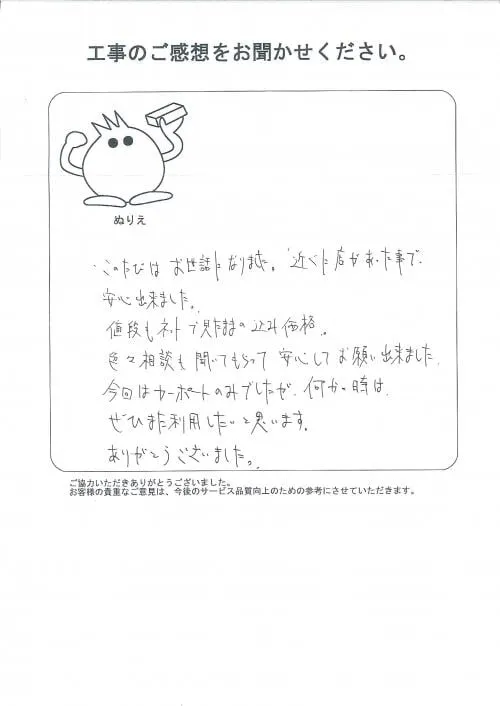 工事のご感想をお聞かせください。
ぬりえ
このたびは お世話になりました。近くに店があった事で、
安心出来ました。
値段もネットで見たままの込み価格。
色々相談も聞いてもらって安心してお願い出来ました。
今回はカーポートのみでしたが、何かの時は、
ぜひまた利用したいと思います。
ありがとうございました。
ご協力いただきありがとうございました。
お客様の貴重なご意見は、今後のサービス品質向上のための参考にさせていただきます。